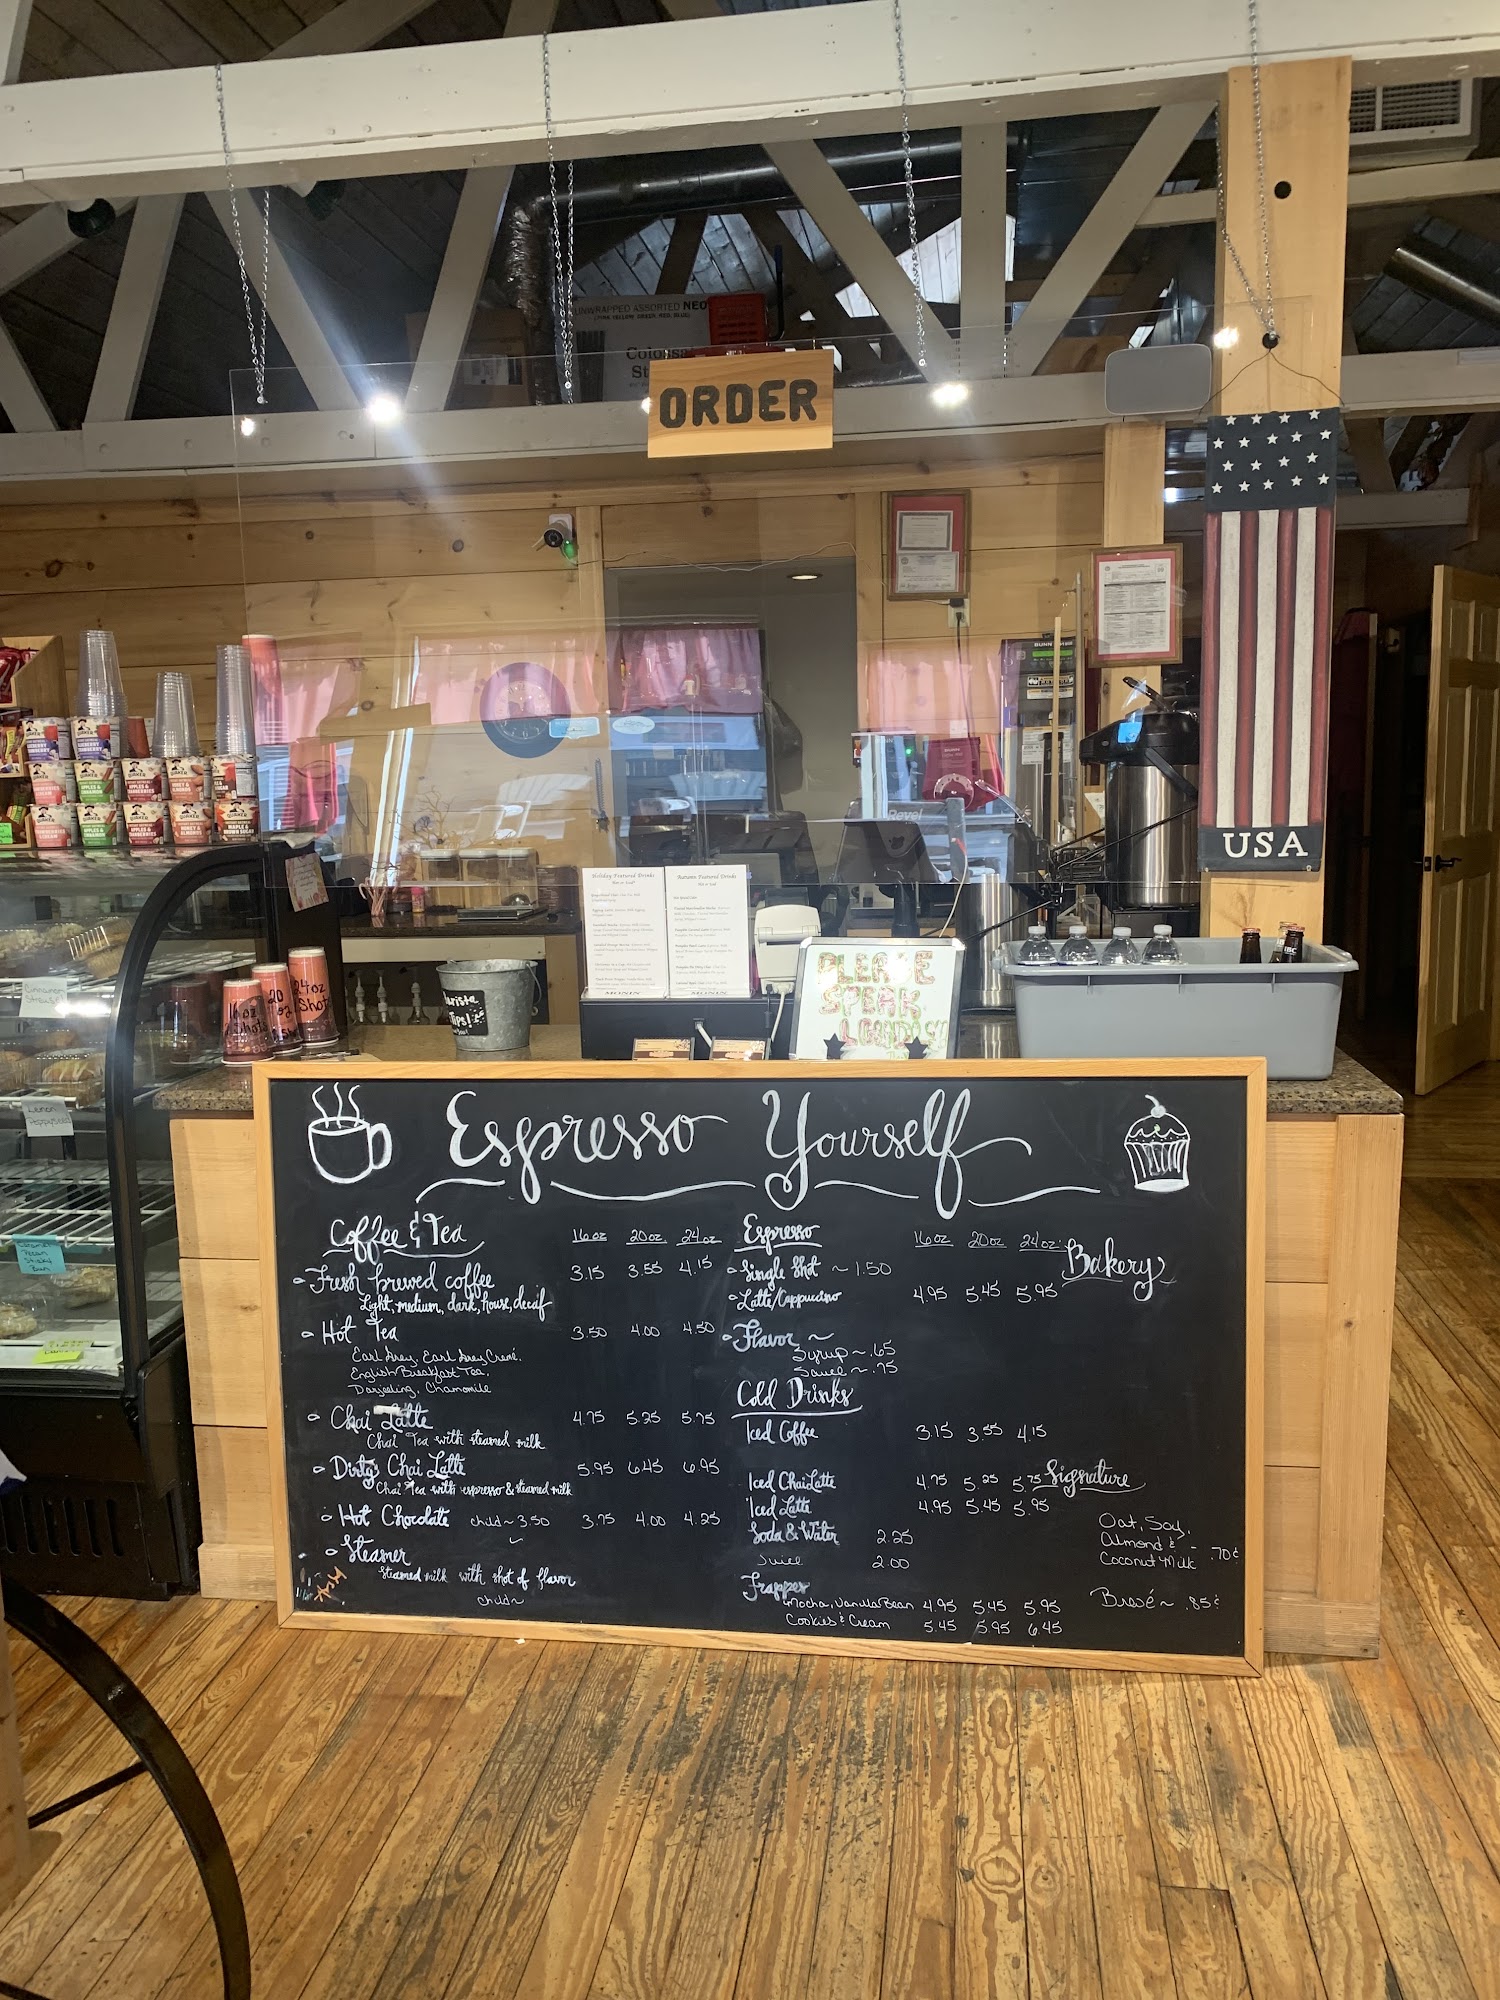 UNWRAPPED ASSORTED NEO
Colossa
St
ORDER
BUNN
USA
QUAKER
Revel
Holiday Featured Drinks
Autumn Featured Drinks
MONIN
MONIN
PLEASE
SPEAK
LOUDLY
Tips!
16 oz
20
24 oz
Shots
Cinnamon
Lemon
Poppyseed
Pecan
Sticky
Bun
Espresso Yourself
Coffee & Tea 16 oz 20 oz 24 oz
Fresh brewed coffee 3.15 3.55 4.15
Light, medium, dark, house, decaf
Hot Tea 3.50 4.00 4.50
Earl Grey, Earl Grey Cremé,
English Breakfast Tea,
Darjeeling, Chamomile
Chai Latte 4.75 5.25 5.75
Chai Tea with steamed milk
Dirty Chai Latte 5.95 6.45 6.95
Chai Tea with espresso & steamed milk
Hot Chocolate child ~ 3.50 3.75 4.00 4.25
Steamer
Steamed milk with shot of flavor
child ~
Espresso 16 oz 20 oz 24 oz
Single Shot ~ 1.50
Latte/Cappuccino 4.95 5.45 5.95
Flavor ~
Syrup ~ .65
Sauce ~ .75
Cold Drinks
Iced Coffee 3.15 3.55 4.15
Iced Chai Latte 4.75 5.25 5.75
Iced Latte 4.95 5.45 5.95
Soda & Water 2.25
Juice 2.00
Frappes
Mocha, Vanilla Bean 4.95 5.45 5.95
Cookies & Cream 5.45 5.95 6.45
Bakery
Signature
Oat, Soy,
Almond & - .70¢
Coconut Milk
Brevé ~ .85¢